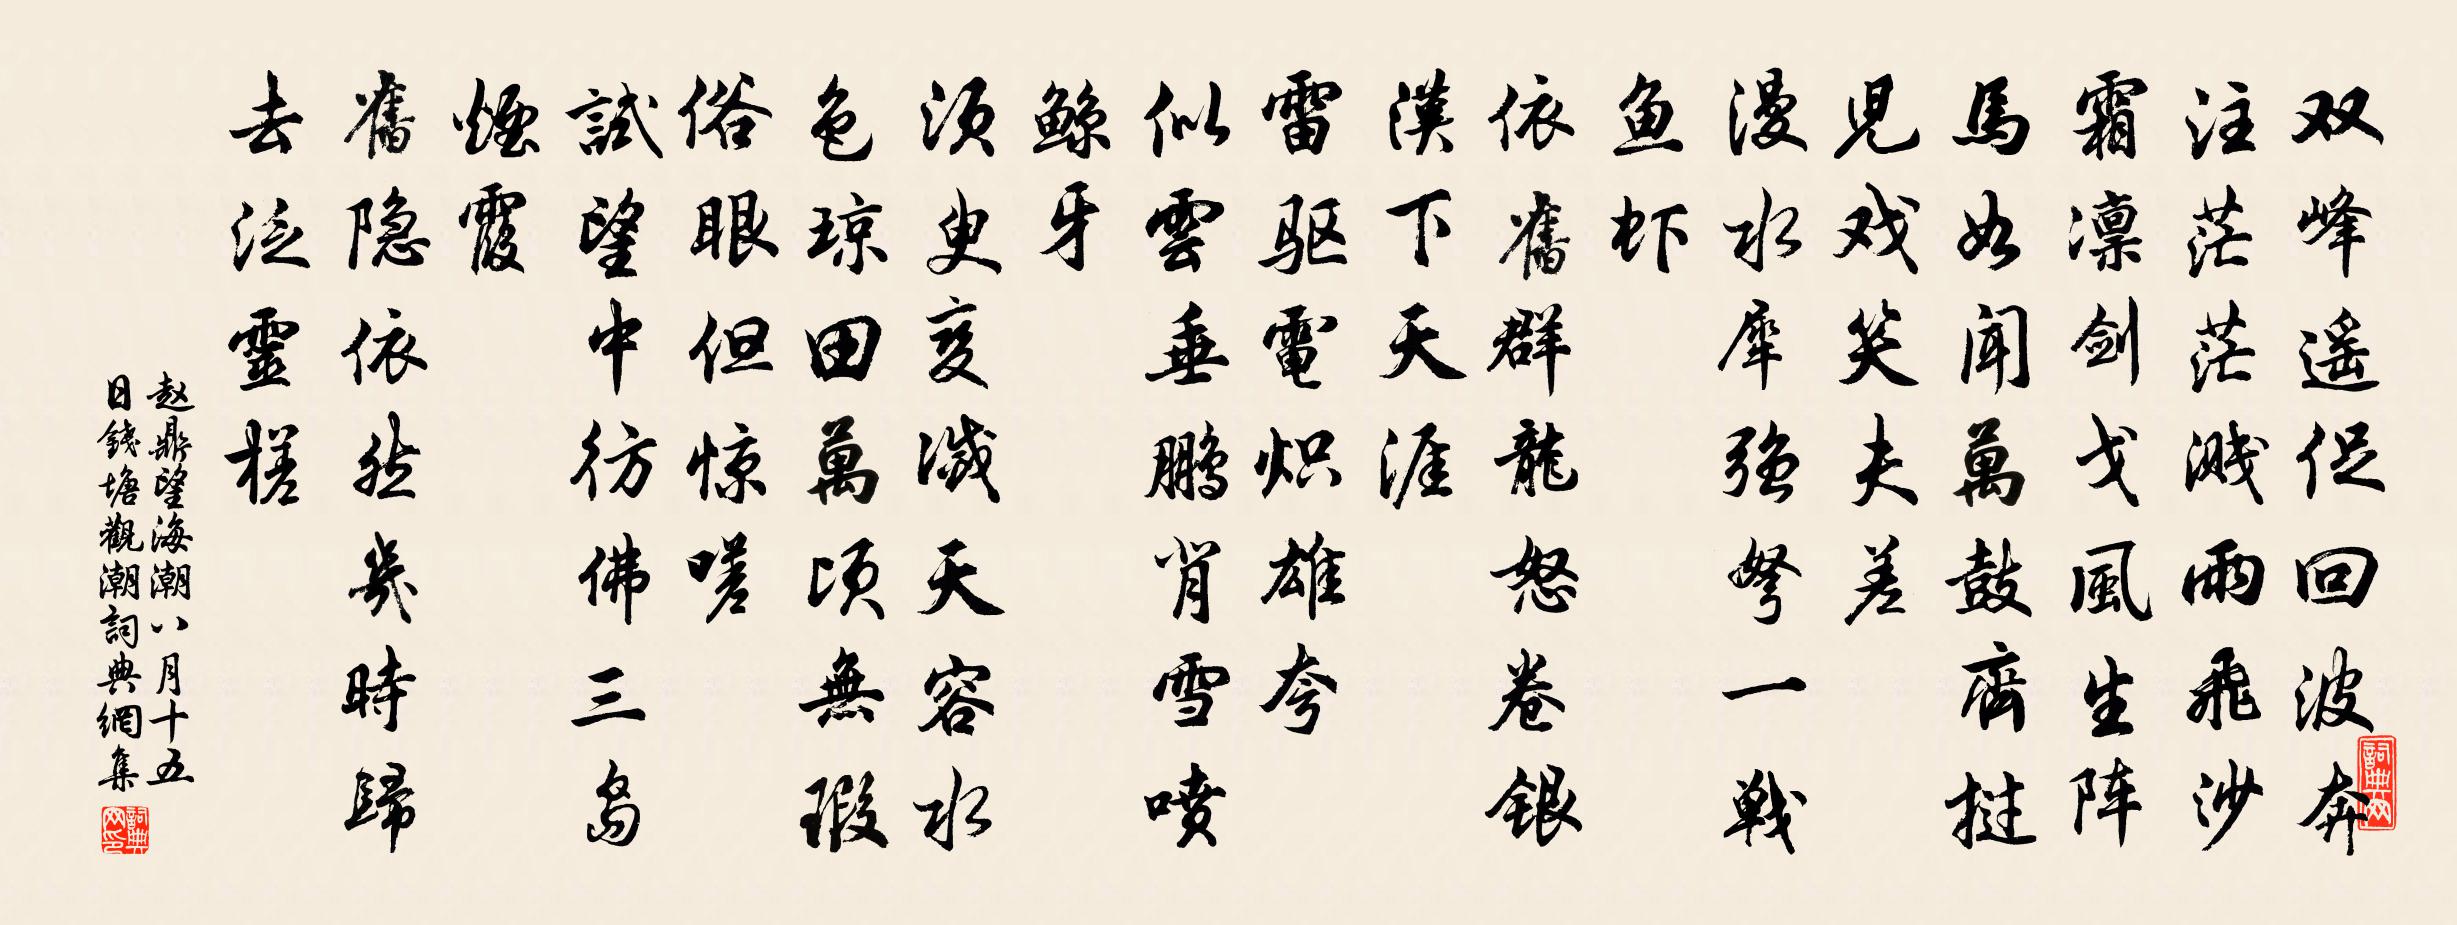 双峰遥促回波奔
注茫茫溅雨飛沙
霜凛劍戈風生阵
馬如聞萬鼓齊挝
児戏笑夫差
漫水犀强弩一戰
鱼虾
依舊群龍怒卷銀
漢下天涯
雷驱電炽雄夸
似雲垂鹏背雪喷
鲸牙
须臾变滅天容水
色琼田萬頃無瑕
俗眼但惊嗟
試望中彷佛三島
煙霞
舊隐依然幾時歸
去泛靈槎
赵鼎望海潮八月十五
日錢塘觀潮詞典網集
詞典网
詞典网印